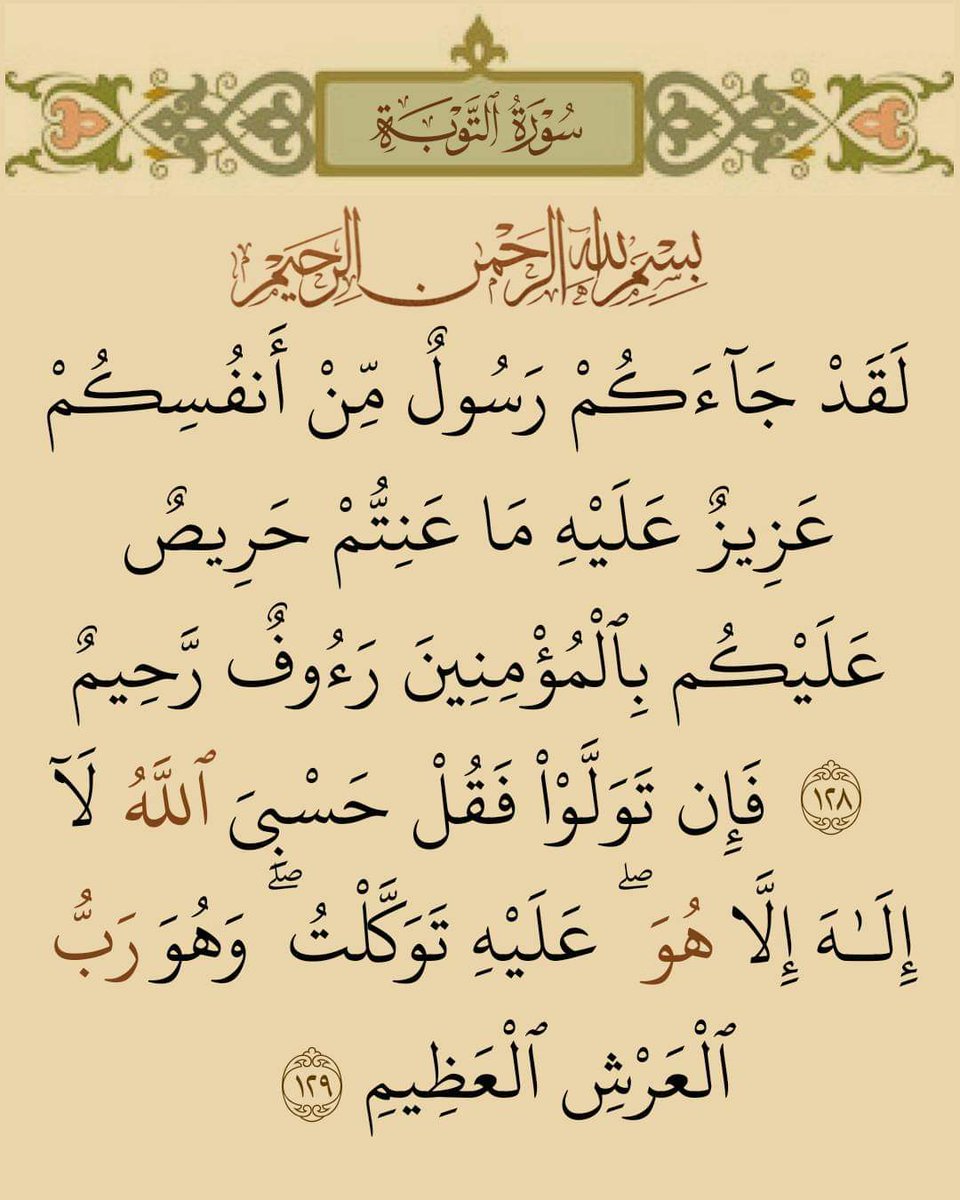 سُورَةُ ٱلتَّوْبَةِ
بِسْمِ ٱللَّهِ ٱلرَّحْمَٰنِ ٱلرَّحِيمِ
لَقَدْ جَآءَكُمْ رَسُولٌ مِّنْ أَنفُسِكُمْ
عَزِيزٌ عَلَيْهِ مَا عَنِتُّمْ حَرِيصٌ
عَلَيْكُم بِٱلْمُؤْمِنِينَ رَءُوفٌ رَّحِيمٌ
١٢٨ فَإِن تَوَلَّوْا۟ فَقُلْ حَسْبِىَ ٱللَّهُ لَآ
إِلَـٰهَ إِلَّا هُوَ ۖ عَلَيْهِ تَوَكَّلْتُ ۖ وَهُوَ رَبُّ
ٱلْعَرْشِ ٱلْعَظِيمِ ١٢٩